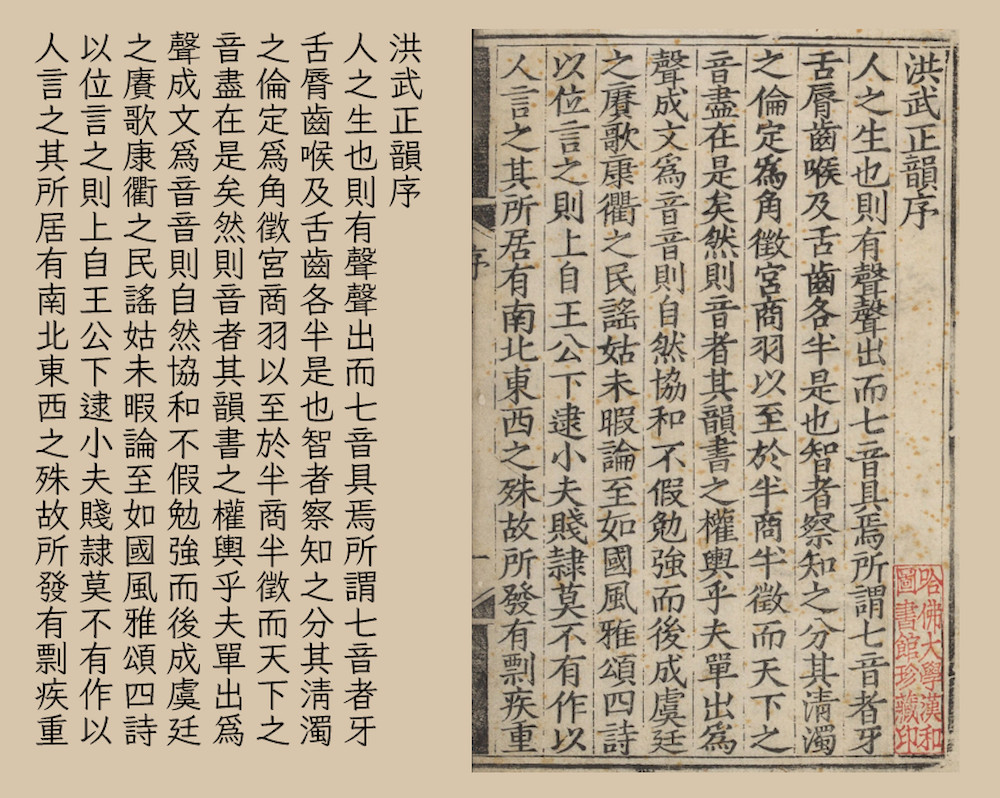 洪武正韻序
人之生也則有聲聲出而七音具焉所謂七音者牙
舌脣齒喉及舌齒各半是也智者察知之分其淸濁
之倫定爲角徵宮商羽以至於半商半徵而天下之
音盡在是矣然則音者其韻書之權輿乎夫單出爲
聲成文爲音音則自然協和不假勉強而後成虞廷
之賡歌康衢之民謠姑未暇論至如國風雅頌四詩
以位言之則上自王公下逮小夫賤隷莫不有作以
人言之其所居有南北東西之殊故所發有剽疾重
序
一
哈佛大學漢和
圖書館珍藏印
洪武正韻序
人之生也則有聲聲出而七音具焉所謂七音者牙
舌脣齒喉及舌齒各半是也智者察知之分其淸濁
之倫定爲角徵宮商羽以至於半商半徵而天下之
音盡在是矣然則音者其韻書之權輿乎夫單出爲
聲成文爲音音則自然協和不假勉強而後成虞廷
之賡歌康衢之民謠姑未暇論至如國風雅頌四詩
以位言之則上自王公下逮小夫賤隷莫不有作以
人言之其所居有南北東西之殊故所發有剽疾重